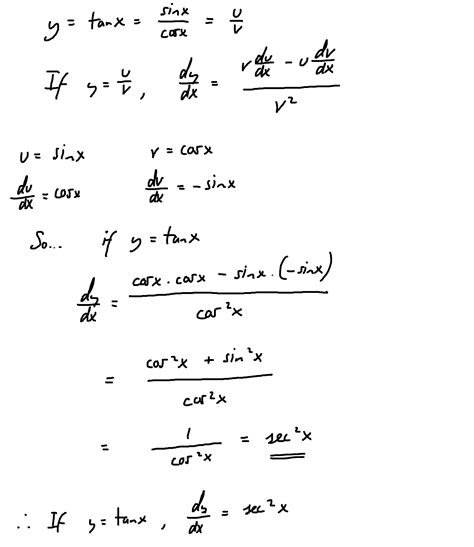 y = tanx = sinx/cosx = u/v
If y = u/v, dy/dx = (v du/dx - u dv/dx)/v²
u = sinx v = cosx
du/dx = cosx dv/dx = -sinx
So... if y = tanx
dy/dx = (cosx . cosx - sinx . (-sinx))/cos²x
= (cos²x + sin²x)/cos²x
= 1/cos²x = sec²x
∴ If y = tanx, dy/dx = sec²x